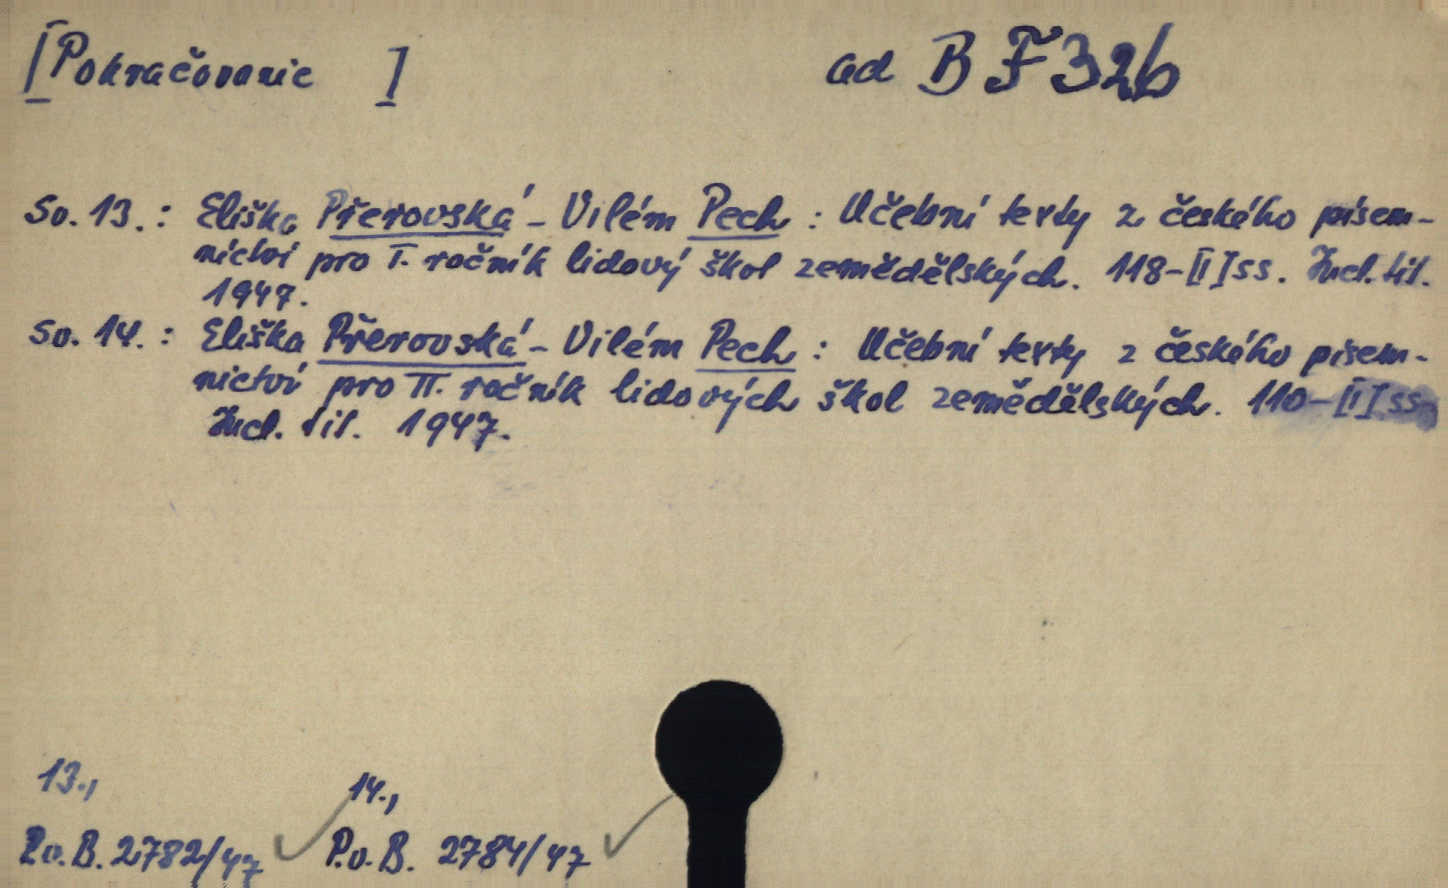 [Pokračovanie ] ad B F 326
So. 13.: Eliška Přerovská - Vilém Pech : Učební texty z českého písem-
nictví pro I. ročník lidový škol zemědělských. 118-[I] ss. Incl. tit.
1947.
So. 14. : Eliška Přerovská - Vilém Pech : Učební texty z českého písem-
nictví pro II. ročník lidových škol zemědělských. 110-[I] ss.
Incl. tit. 1947.
13., 14.,
P.o. B. 2782/47 P.o. B. 2784/47